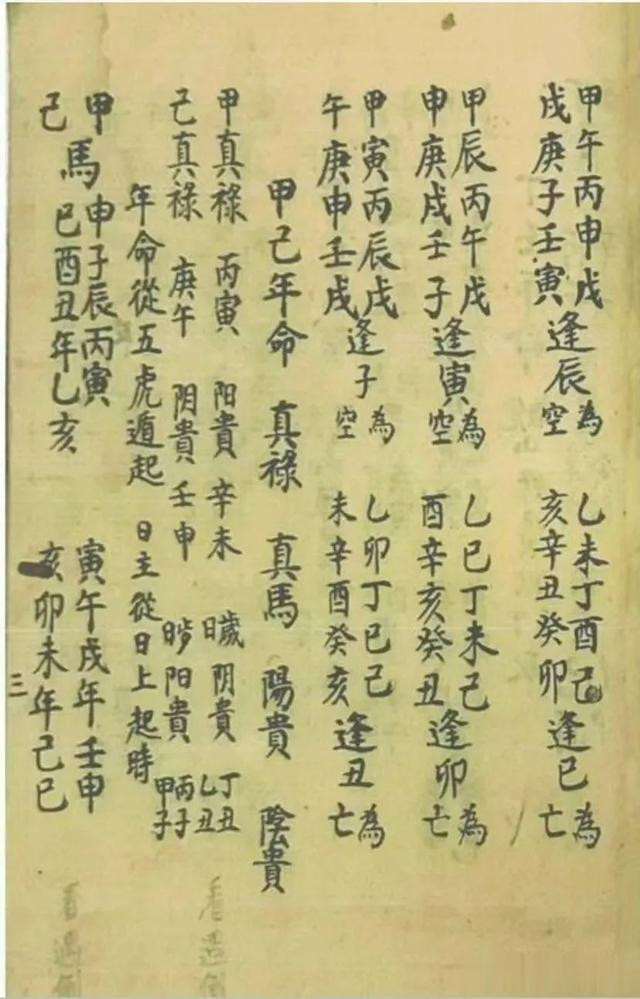 甲午丙申戊
戌庚子壬寅
逢辰
為空
乙未丁酉己
亥辛丑癸卯
逢巳
為亡
甲辰丙午戊
申庚戌壬子
逢寅
為空
乙巳丁未己
酉辛亥癸丑
逢卯
為亡
甲寅丙辰戊
午庚申壬戌
逢子
為空
乙卯丁巳己
未辛酉癸亥
逢丑
為亡
甲己年命 真祿 真馬 陽貴 陰貴
甲真祿 丙寅 阳貴 辛未 阴貴 丁丑 乙丑
己真祿 庚午 阴貴 壬申 阳貴 丙子 甲子
年命從五虎遁起 日主從日上起時
甲己
馬
申子辰丙寅
巳酉丑年乙亥
寅午戌年壬申
亥卯未年己巳
三